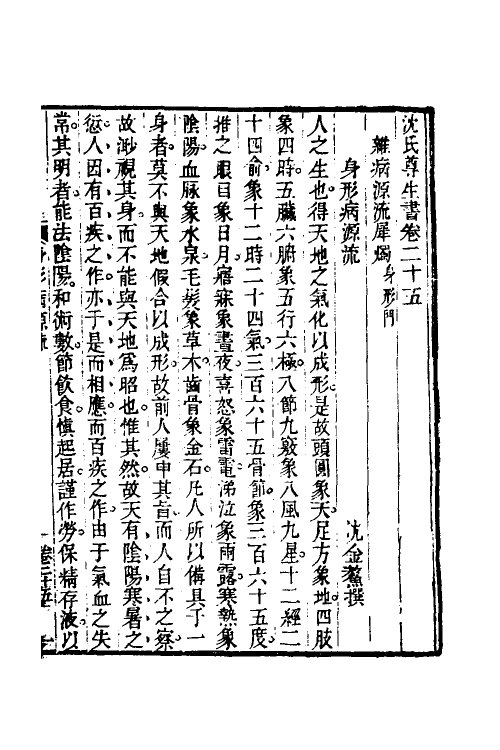 沈氏尊生書卷二十五
雜病源流犀燭身形門
身形病源流　沈金鰲撰
人之生也得天地之氣化以成形是故頭圓象天足方象地四肢
象四時五臟六腑象五行六極八節九竅象八風九星十二經二
十四俞象十二時二十四氣三百六十五骨節象三百六十五度
推之眼目象日月寤寐象晝夜喜怒象雷電涕泣象雨露寒熱象
陰陽血脉象水泉毛髮象草木齒骨象金石凡人所以備具于一
身者莫不與天地假合以成形故前人屢申其言而人自不之察
故渺視其身而不能與天地為昭也惟其然故天有陰陽寒暑之
愆人因有百疾之作亦于是而相應而百疾之作由于氣血之失
常其明者能法陰陽和術數節飲食慎起居謹作勞保精存液以
身形病源流　卷二十五　一